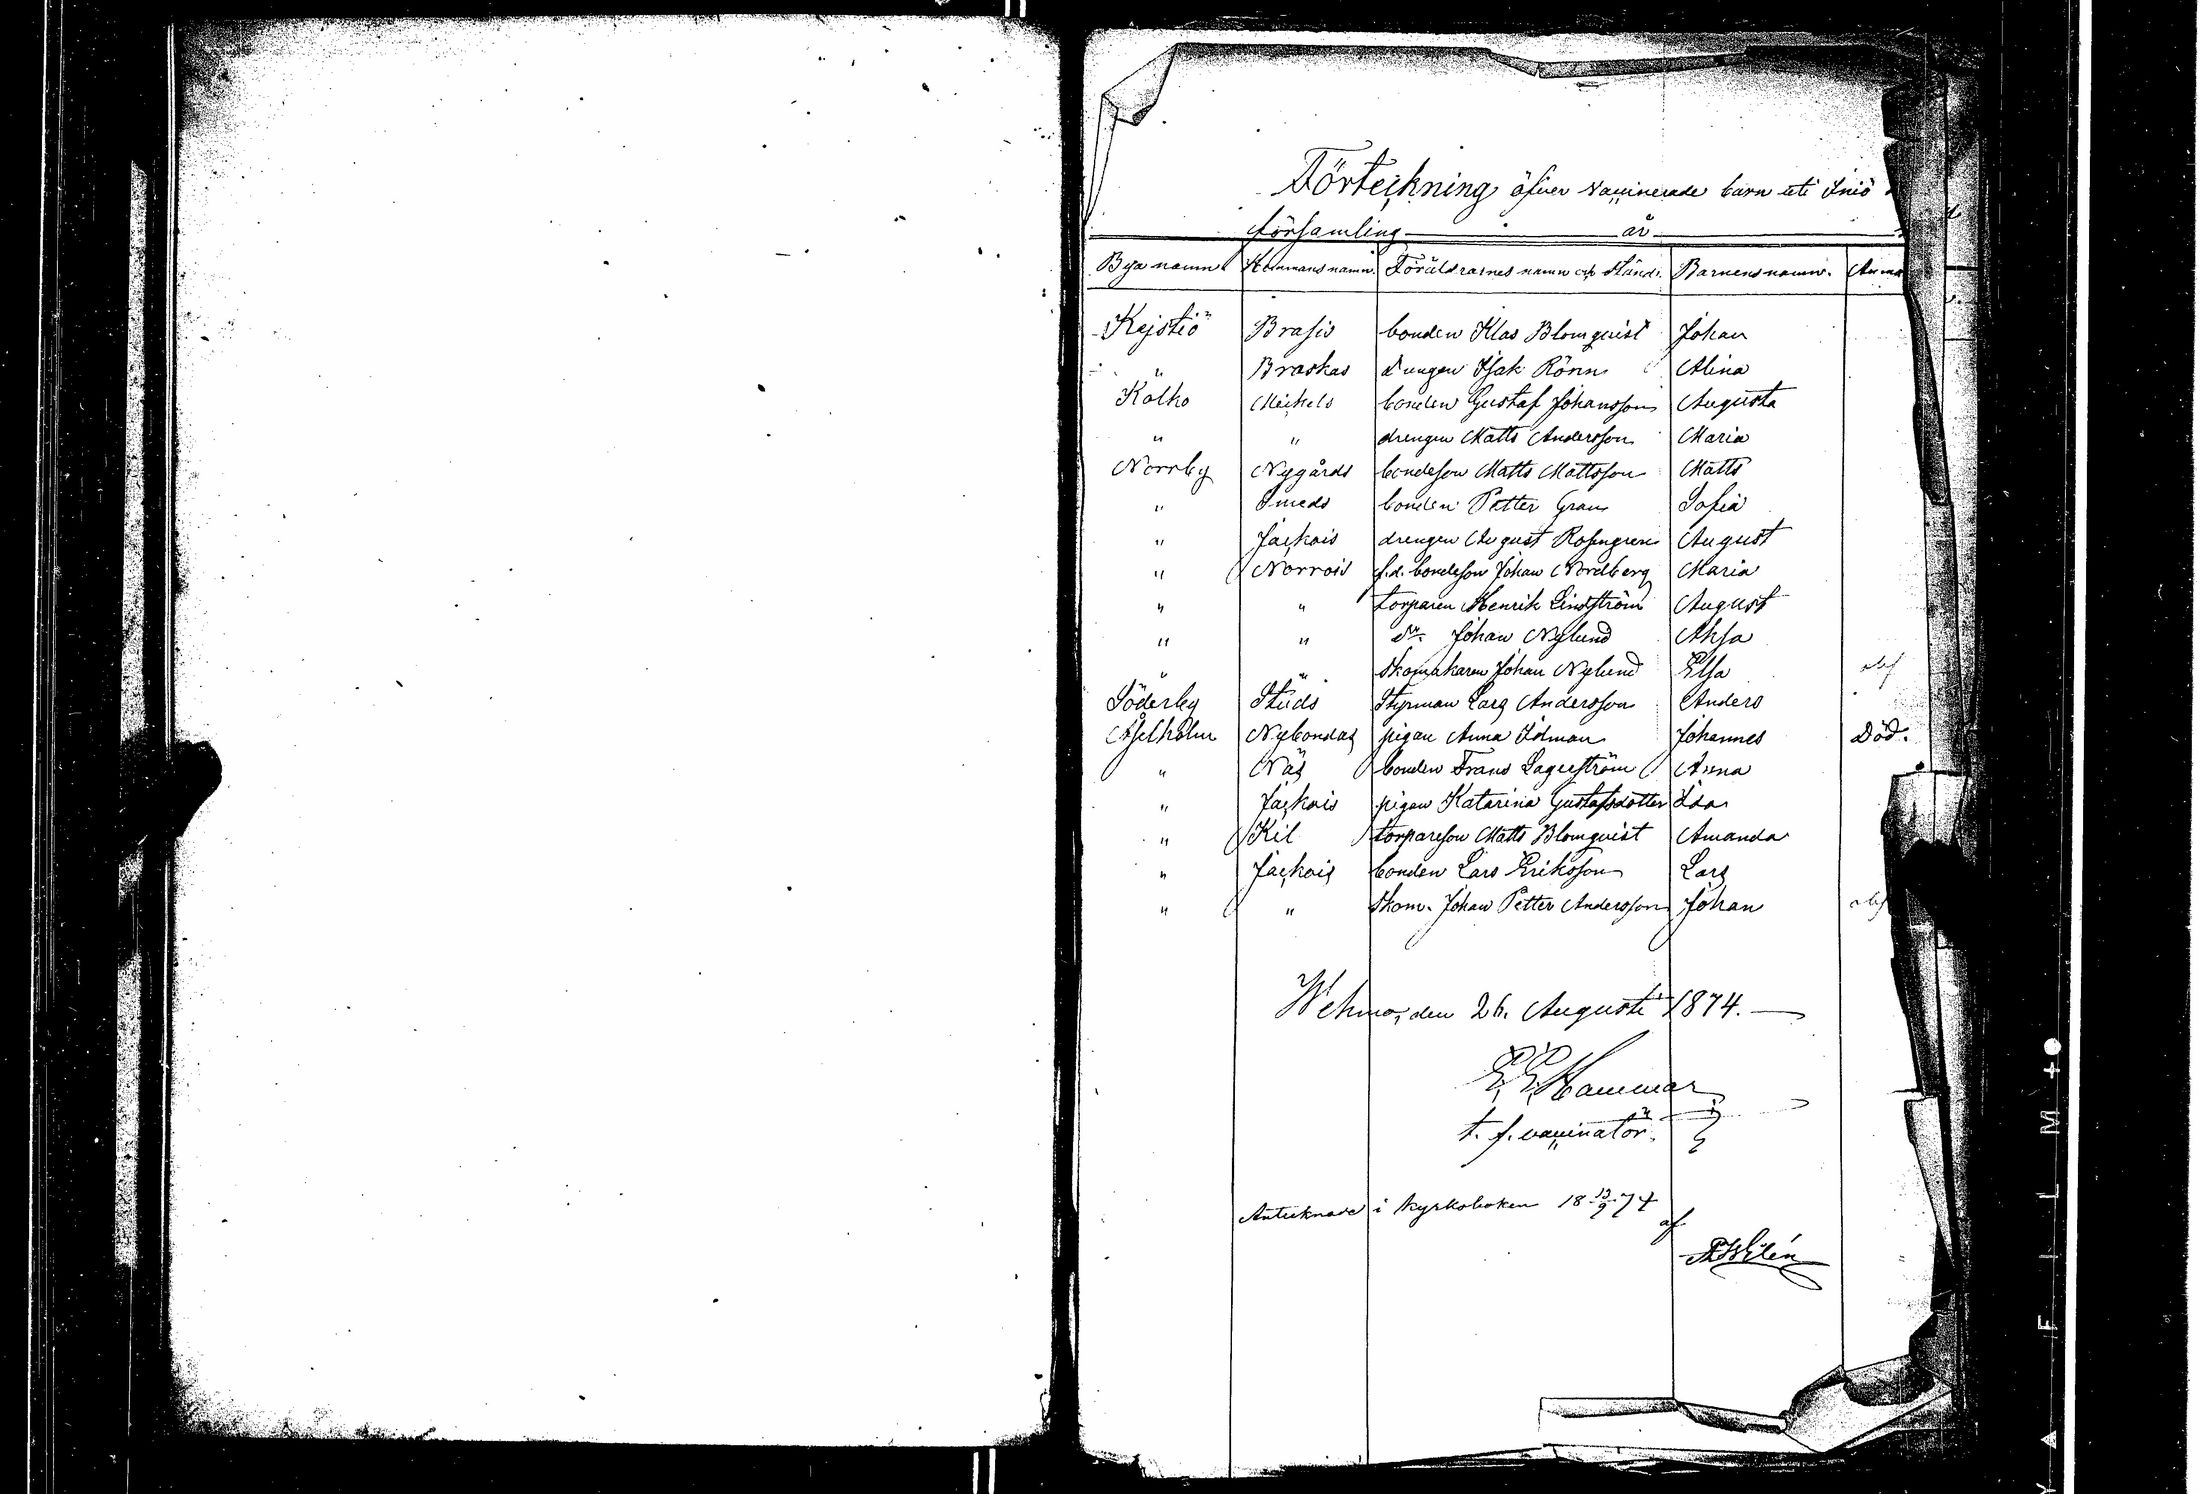 Förteckning öfver vaccinerade barn uti Iniö
församling år
Bya namn. Hemmans namn. Föräldrarnes namn och Stånd. Barnens namn. Anm
Kejstiö Brasis bonden Klas Blomquist Johan
" Braskas drengen Isak Rönn Alina
Kolko Mickels bonden Gustaf Johansson Augusta
" " drengen Matts Andersson Maria
Norrby Nygårds bondeson Matts Mattsson Matts
" Smeds bonden Petter Gran Sofia
" Jackois drengen August Rosengren August
" Norrois f.d. bondeson Johan Nordberg Maria
" " torparen Henrik Lindström August
" " do Johan Nylund
" " Skomakaren Johan Nylund Elsa
Söderby Studs Styrman Lars Andersson Anders
Åselholm Nybondas pigan Anna Idman Johannes Död.
" Näs bonden Frans Lagerström Anna
" Jackois pigan Katarina Gustafsdotter Ida
" Kil torpareson Matts Blomquist Amanda
" Jackois bonden Lars Eriksson Lars
" " Skom. Johan Petter Andersson Johan
Wehmo, den 26. Augusti 1874.
E. E. Hammar
t. f. vaccinatör.
Antecknade i kyrkoboken 18 13/9 74
af
Wilén
F I L M